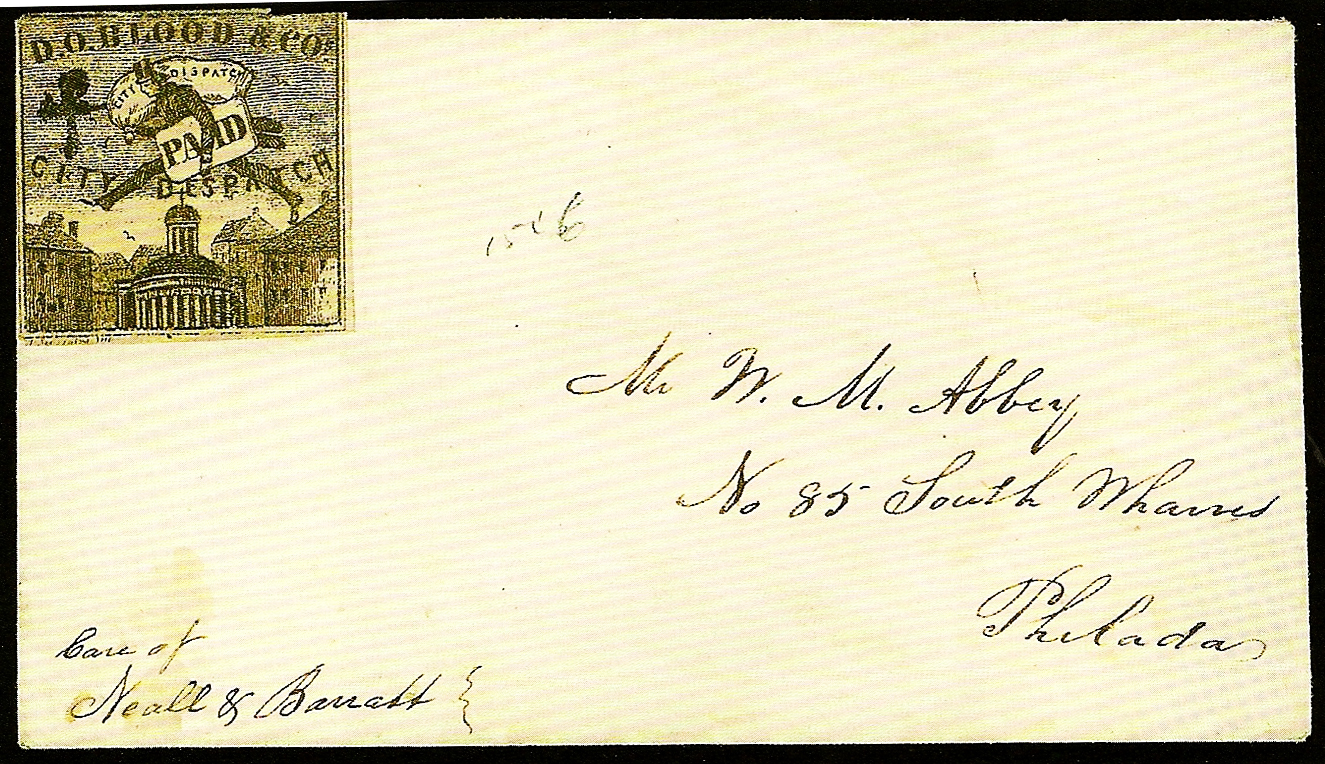 D.O. BLOOD & CO'S
CITY DISPATCH
PAID
CITY DESPATCH
Mr W. M. Abbey
No 85 South Wharves
Philada
Care of
Neall & Barratt